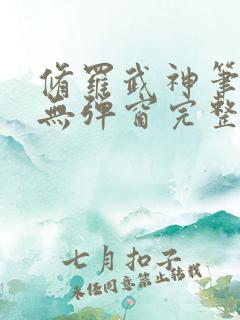 脩羅武神筆
無彈窗完整
七月扣子
未經同意禁止轉載